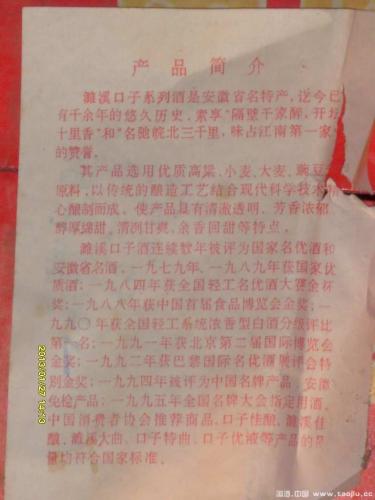 产品简介
濉溪口子系列酒是安徽省名特产，迄今已
有千余年的悠久历史，素享"隔壁千家醉，开坛
十里香"和"名驰皖北三千里，味占江南第一家"
的赞誉。
其产品选用优质高粱、小麦、大麦、豌豆
原料，以传统的酿造工艺结合现代科学技术
心酿制而成。使产品具有清澈透明、芳香浓郁
醇厚绵甜、清冽甘爽、余香回甜等特点。
濉溪口子酒连续数年被评为国家名优酒和
安徽省名酒，一九七九年、一九八九年获国家优
质酒；一九八四年获全国轻工名优酒大赛金杯
奖；一九八八年获中国首届食品博览会金奖；一
九九〇年获全国轻工系统浓香型白酒分级评比
第一名；一九九一年获北京第二届国际博览会
金奖；一九九二年获巴黎国际名优酒展评会特
别金奖；一九九四年被评为中国名牌产品，安徽
免检产品；一九九五年全国名牌大会指定用酒，
中国消费者协会推荐商品，口子佳酿、濉溪佳
酿、濉溪大曲、口子特曲、口子优液等产品的质
量均符合国家标准。
2013/01/27 14:13
淘酒.中国 / www.taojiu.cc